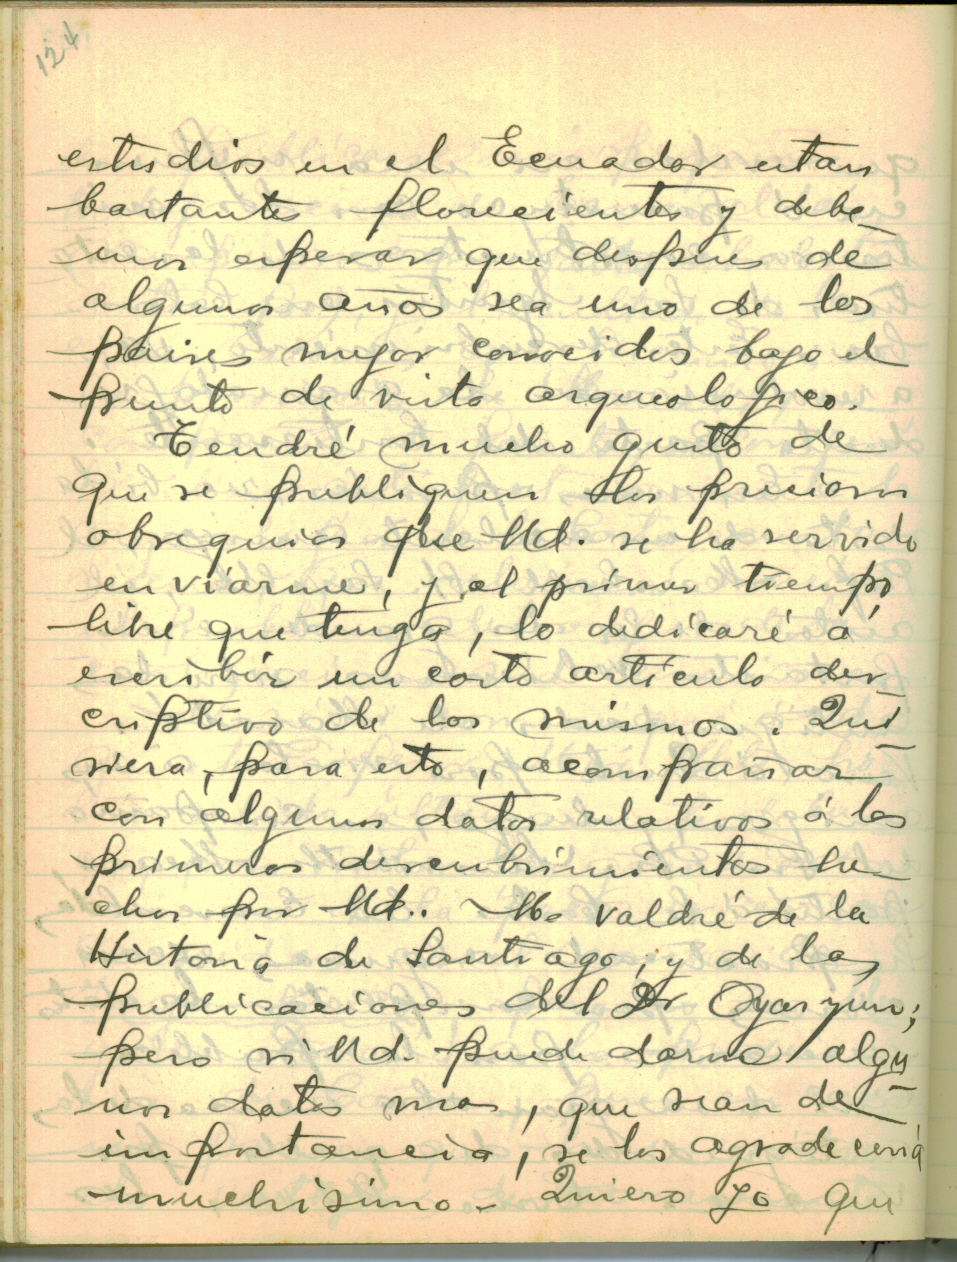 124
estudios en el Ecuador estan
bastantes florecientes y debe_
mos esperar que despues de
algunos años sea uno de los
paises mejor conocidos bajo el
punto de vista arqueologico.
Tendré mucho gusto de
que se publiquen los preciosos
obsequios que Ud. se ha servido
enviarme, y el primer tiempo
libre que tenga, lo dedicaré á
escribir un corto artículo des
criptivo de los mismos. Qui_
siera, para esto, acompañar
con algunos datos relativos á los
primeros descubrimientos he_
chos por Ud.. Me valdré de la
Historia de Santiago, y de las
publicaciones del Dr Oyarzun;
pero si Ud. puede darme algu_
nos datos mas, que sean de
importancia, se los agradecería
muchisimo. Quiero yo que